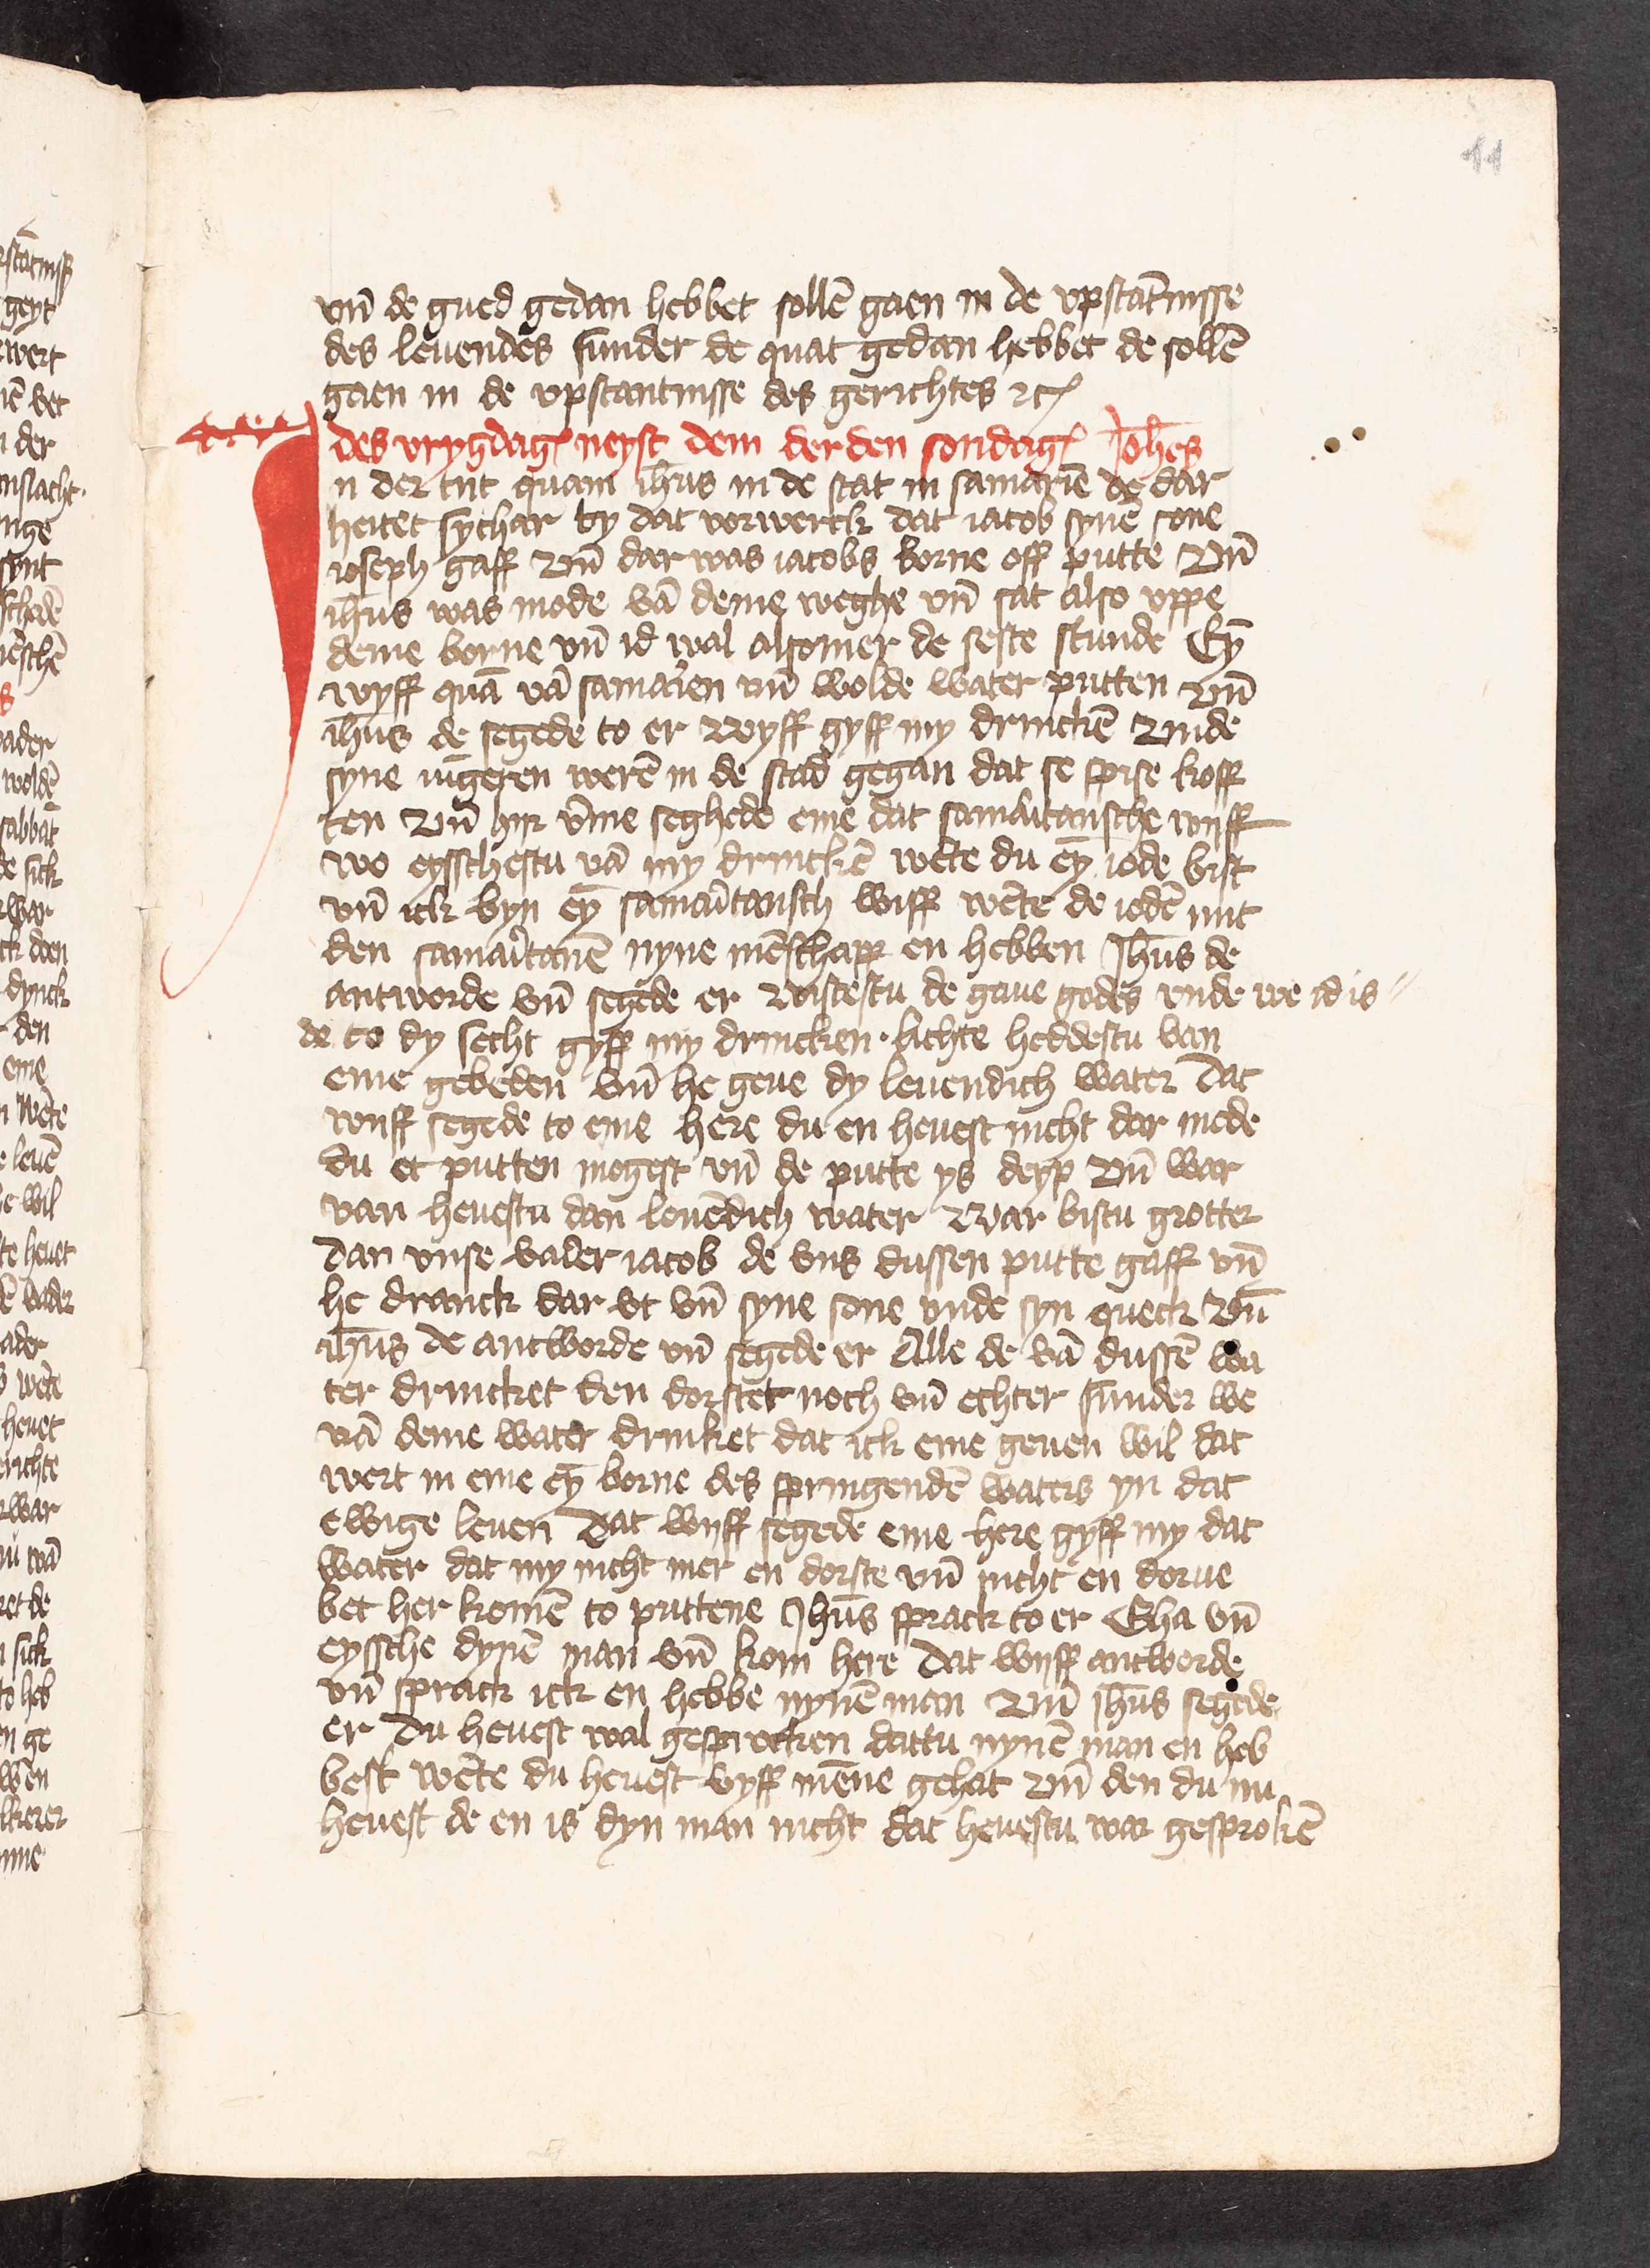 11
vn̄ de gued gedan hebbet sollē gaen in de vpstātnisse
des leuendes sunder de quat gedan hebbet de sollē
gaen in de vpstantnisse des gerichtes ꝛcͭ
des vrygdagꝭ neyst dem derden sondagꝭ Joh̄es
In der tyt quam ih̄us in de stat in samariē de dar
heitet sychar by dat vorwerck dat iacob synē sone
ioseph gaff Vn̄ dar was iacobs borne off putte Vn̄
ih̄us was mode vā deme weghe vn̄ sat also vppe
deme borne vn̄ id wal alsomer de seste stunde Eȳ
wyff quā vā samarien vn̄ wolde water putten Vn̄
ih̄us de segede to er Wyff gyff my drinckē Vnde
syne iūgeren werē in de stad gegan dat se spise koff
ten Vn̄ hyr v̄me seghede eme dat samaritansche wyff
wo eysschestu vā my drinckē wēte du eȳ iode bist
vn̄ ick byn eȳ samaritansch wiff wēte de iodē mit
den samaritanē nyne mēschapp en hebben Jh̄us de
antworde vn̄ segede er Wistestu de gaue godes vnde we id is
de to dy secht gyff my drincken · lichte heddestu van
eme gebeden vn̄ he geue dy leuendich water Dat
wyff segede to eme here du en heuest nicht dar mede
du et putten mogest vn̄ de putte ys deyp Vn̄ war
van heuestu dan leuēdich water War bistu grotter
dan vnse vader iacob de vns dussen putte gaff vn̄
he dranck dar vt vn̄ syne sone vnde syn queck Vn̄
ih̄us de antworde vn̄ segede er Alle de vā dussē wa
ter drincket den dorstet noch vn̄ echter sunder we
vā deme water drinket dat ick eme geuen wil dat
wert in eme eȳ borne des springendē waters yn dat
ewige leuen Dat wyff segede eme here gyff my dat
water dat my nicht mer en dorste vn̄ nicht en dorue
bet her komē to puttene Jh̄us sprack to er Gha vn̄
eyssche dynē man vn̄ kom here Dat wyff antworde
vn̄ sprack ick en hebbe nynē man Vn̄ ih̄us segede
er Du heuest wal gesprocken dattu nynē man en heb
best wēte du heuest vyff mēne gehat Vn̄ den du nu
heuest de en is dyn man nicht dat heuestu war gesprokē